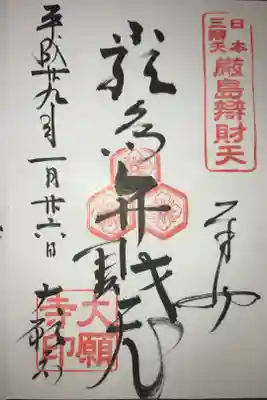 日本三辯天
厳島辯財天
奉拝
厳島弁財天
平成廿九年一月廿六日
大願寺
大願寺印